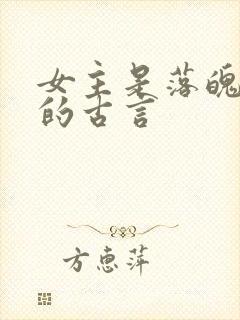 女主是落魄
的古言
方惠萍